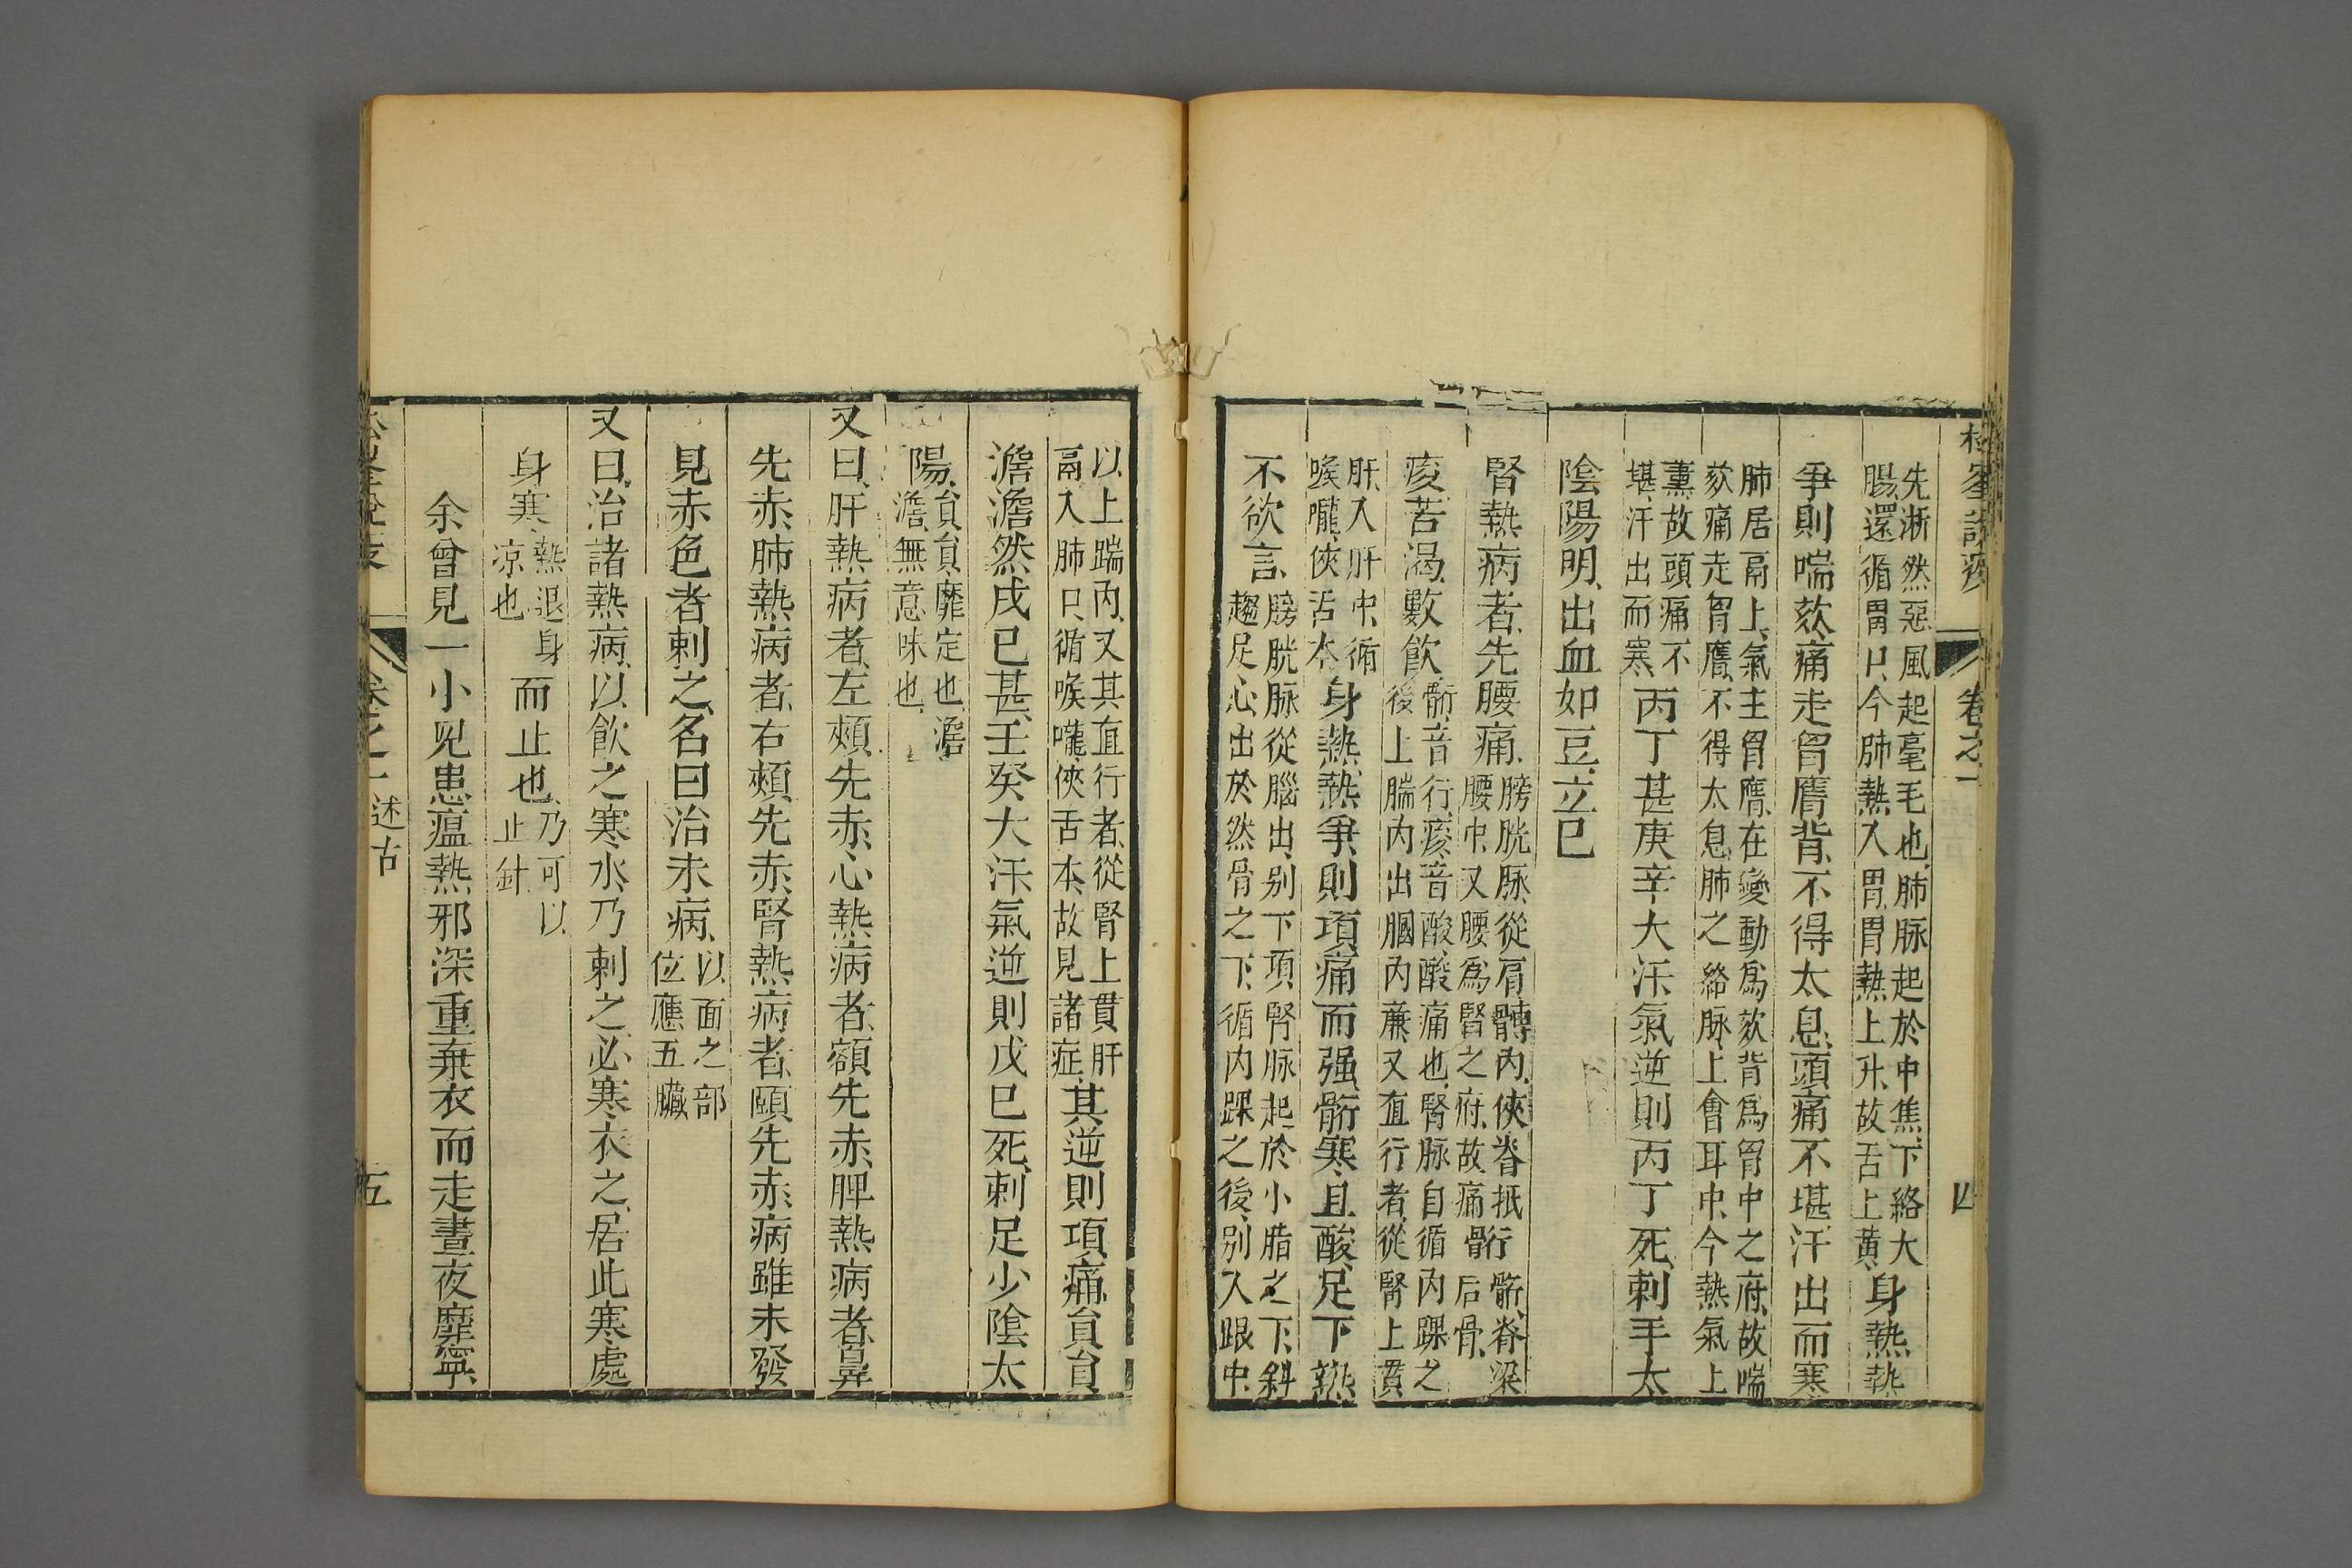 松峯說疫 卷之一 四
先淅然惡風起毫毛也肺脉起於中焦下絡大
腸還循胃口今肺熱入胃胃熱上升故舌上黃身熱熱
爭則喘欬痛走胷膺背不得太息頭痛不堪汗出而寒
肺居鬲上氣主胷膺在變動爲欬背爲胷中之府故喘
欬痛走胷膺不得太息肺之絡脉上會耳中今熱氣上
薰故頭痛不
堪汗出而寒丙丁甚庚辛大汗氣逆則丙丁死刺手太
陰陽明出血如豆立已
腎熱病者先腰痛
膀胱脉從肩髆內俠脊抵骨行 䯒脊梁
腰中又腰爲腎之府故痛骨后骨
痠苦渴數飲
䯒音行痠音酸酸痛也腎脉自循內踝之
後上腨內出膕內亷又直行者從腎上貫
肝入肝中循
喉嚨俠舌本身熱熱爭則項痛而强䯒寒且酸足下熱
不欲言
膀胱脉從腦出别下項腎脉起於小脂之下斜
趨足心出於然骨之下循內踝之後别入跟中
以上踹內又其直行者從腎上貫肝
鬲入肺口循喉嚨俠舌本故見諸症其逆則項痛貟貟
澹澹然戌巳甚壬癸大汗氣逆則戊巳死刺足少陰太
陽
貟貟靡定也澹
澹無意味也
又曰肝熱病者左頰先赤心熱病者額先赤脾熱病者鼻
先赤肺熱病者右頰先赤腎熱病者頤先赤病雖未發
見赤色者刺之名曰治未病
以面之部
位應五臟
又曰治諸熱病以飲之寒水乃刺之必寒衣之居此寒處
身寒
熱退身
凉也
而止也
乃可以
止針
余曾見一小兒患瘟熱邪深重棄衣而走晝夜靡寧
松峯說疫 卷之一 述古 五